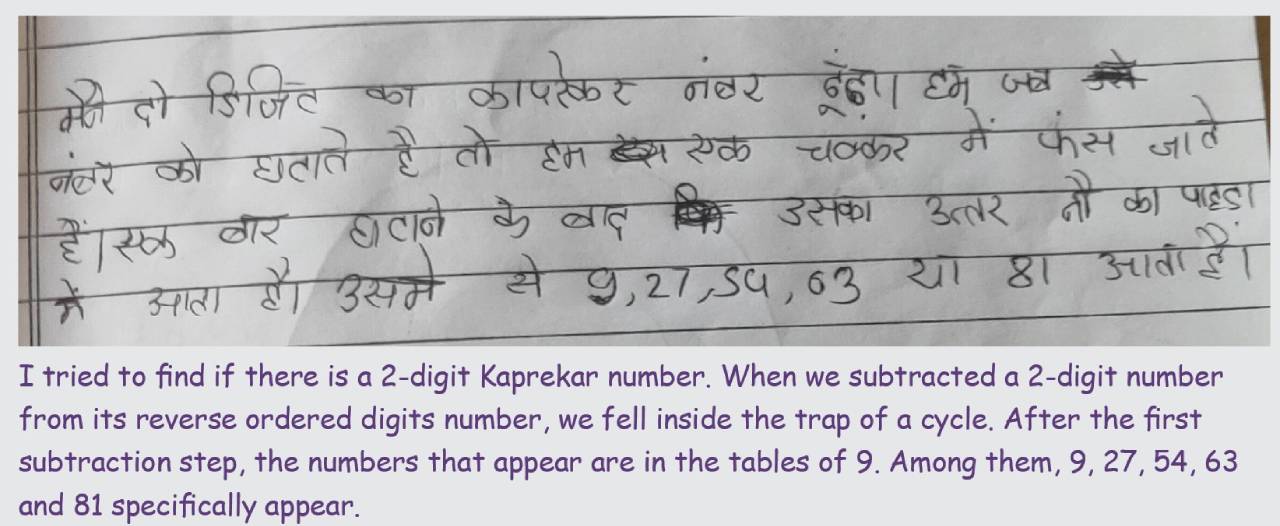 मैने दो डिजिट का कापरेकर नंबर ढूंढ़ा। हम जब
नंबर को घटाते है तो हम एक चक्कर में फंस जाते
हैं। एक बार घटाने के बाद उसका उत्तर नौ का पाहडा
में आता है। उसमे से 9, 27, 54, 63 या 81 आता है।
I tried to find if there is a 2-digit Kaprekar number. When we subtracted a 2-digit number
from its reverse ordered digits number, we fell inside the trap of a cycle. After the first
subtraction step, the numbers that appear are in the tables of 9. Among them, 9, 27, 54, 63
and 81 specifically appear.